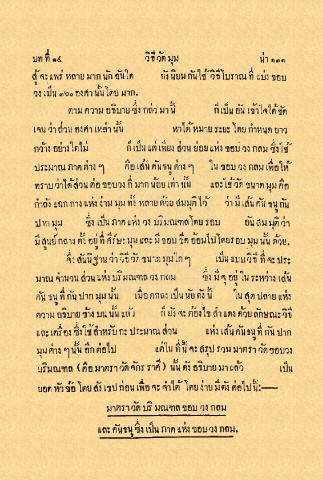 บทที่ ๑๕ วิธีวัดมุม น่า ๑๓๑
สู้จะแพร่หลายมากนักฉันใด ยังนิยมกันใช้วิธีโบราณ ที่แบ่งขอบ
วงเป็น ๓๖๐ องศานั้นโดยมาก.
ตามความอธิบายซึ่งกล่าวมานี้ ก็เป็นอันเข้าใจได้ชัด
เจนว่าส่วนองศาเหล่านั้น หาได้หมายระยะโดยกำหนดยาว
กว้างอย่างใดไม่ ก็เป็นแต่เพียงส่วนย่อยแห่งขอบวงกลมซึ่งใช้
ประมาณภาคต่างๆ คือเส้นคันธนูต่างๆ ในขอบวงกลมเพื่อให้
ทราบว่าได้ส่วนต่อขอบวงกี่มากน้อยเท่านั้น และใช้วัดขนาดมุมคือ
กำลังแฉกกางแห่งง่ามมุมทั้งหลายด้วยสมมุติไว้ ว่ามีเส้นคันธนูกัน
ปากมุม ซึ่งเป็นภาคแห่งวงบริมณฑลโดยรอบ อันสมมุติว่า
มีศูนย์กลางตั้งอยู่ที่ศีร์ษะมุมและมีขอบขีดอ้อมไปโดยรอบมุมนั้นด้วย.
จึ่งสันนิฐานว่าวิธีวัดขนาดมุมใดๆ เป็นแบบวิธีที่จะประ
มาณจำนวนส่วนแห่งบริมณฑลวงกลม ซึ่งมีจุอยู่ในระหว่างเส้น
คันธนูที่กันปากมุมนั้น เมื่อตกลงเป็นนัยดังนี้ ในสุดปลายแห่ง
ความอธิบายข้างบนนั้นแล้ว ก็ยังจะต้องไขสำแดงด้วยลักษณะวิธี
และเครื่องซึ่งใช้สำหรับกะประมาณส่วน แห่งเส้นคันธนูที่กันปาก
มุมต่างๆ นั้นอีกต่อไป แต่ในที่นี้จะสรุปรวมมาตราวัดขอบวง
บริมณฑล (คือมาตราวัดจักรราศี) นั้นดังอธิบายมาแล้ว เป็น
ยอดหัวข้อโดยสังเขปก่อนเพื่อจะจำได้โดยง่ายมีดังต่อไปนี้:—
มาตราวัดบริมณฑลขอบวงกลม
และคันธนูซึ่งเป็นภาคแห่งขอบวงกลม.